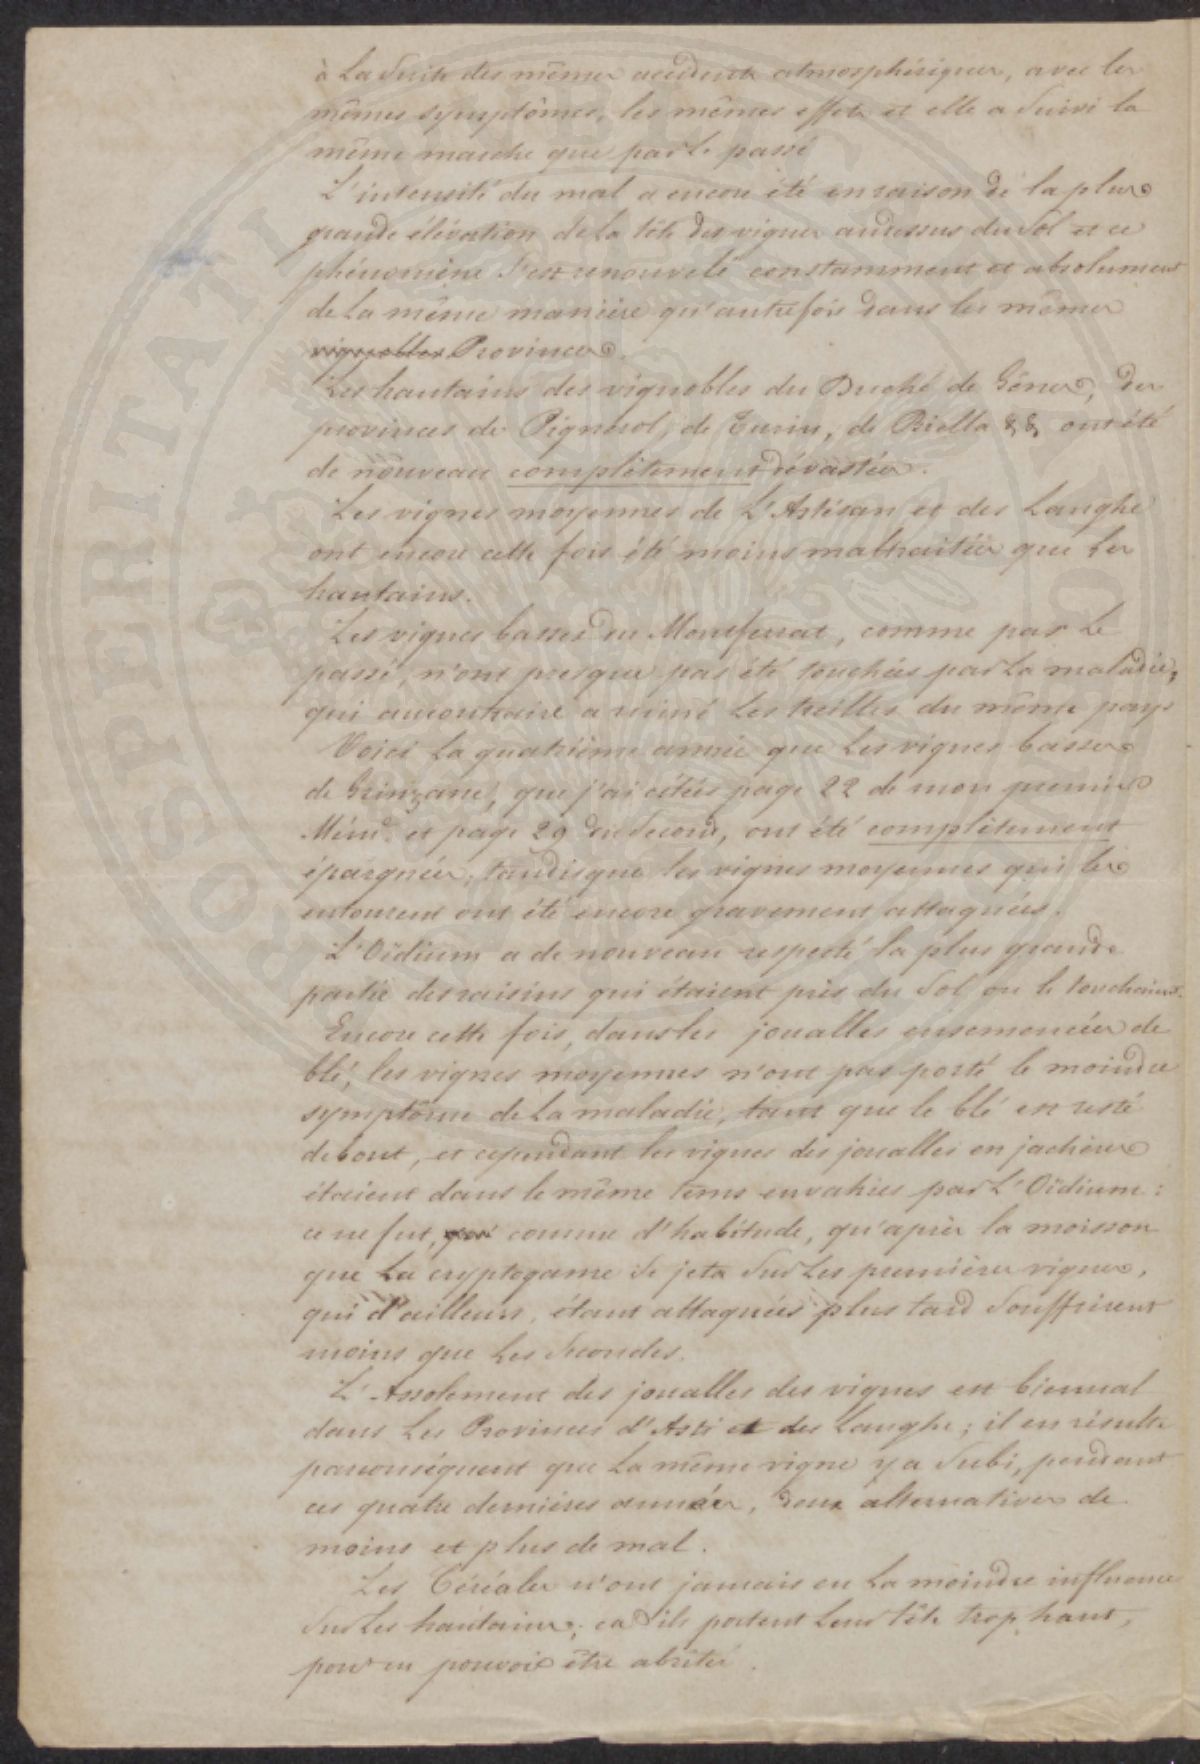 à la suite des mêmes accidents atmosphériques, avec les
mêmes symptômes, les mêmes effets et elle a suivi la
même marche que par le passé
L'intensité du mal a encore été en raison de la plus
grande élévation de la tête des vignes audessus du sol et ce
phénomène s'est renouvelé constamment et absolument
de la même manière qu'autrefois dans les mêmes
vignobles Provinces.
Les hautains des vignobles du Duché de Gênes, des
provinces de Pignerol, de Turin, de Biella &,&, ont été
de nouveau complètement dévastés.
Les vignes moyennes de L'Astésan et des Langhe
ont encore cette fois été moins maltraitées que les
hautains.
Les vignes basses du Montferrat, comme par le
passé, n'ont presque pas été touchées par la maladie,
qui aucontraire a ruiné les treilles du même pays
Voici la quatrième année que les vignes basses
de Grinzane, que j'ai citées page 22 de mon premier
Mémre. et page 29 du second, ont été complètement
épargnées, tandisque les vignes moyennes qui les
entourent ont été encore gravement attaquées.
L'Oïdium a de nouveau respecté la plus grande
partie des raisins qui étaient près du sol ou le touchaient.
Encore cette fois, dans les joualles ensemencées de
blé, les vignes moyennes n'ont pas porté le moindre
symptôme de la maladie, tant que le blé est resté
debout, et cependant les vignes des joualles en jachères
étaient dans le même tems envahies par L'Oïdium:
ce ne fut, comme d'habitude, qu'après la moisson
que la cryptogame se jeta sur les premières vignes,
qui d'ailleurs, étant attaquées plus tard souffrirent
moins que les secondes.
L'Assolement des joualles des vignes est biennal
dans les Provinces d'Asti et des Langhe; il en résulte
parconséquent que la même vigne y a subi, pendant
ces quatre dernières années, deux alternatives de
moins et plus de mal.
Les Céréales n'ont jamais eu la moindre influence
sur les hautains; car ils portent leur tête trop haut,
pour en pouvoir être abrités.
PROSPERITATI PUBLICAE